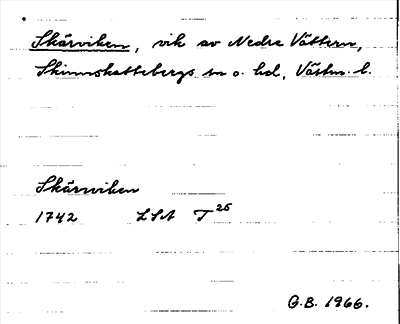 Skärviken, vik av Nedre Vättern,
Skinnskattebergs sn o. hd, Västm. l.
Skärviken
1742 LSA T 25
G.B. 1966.